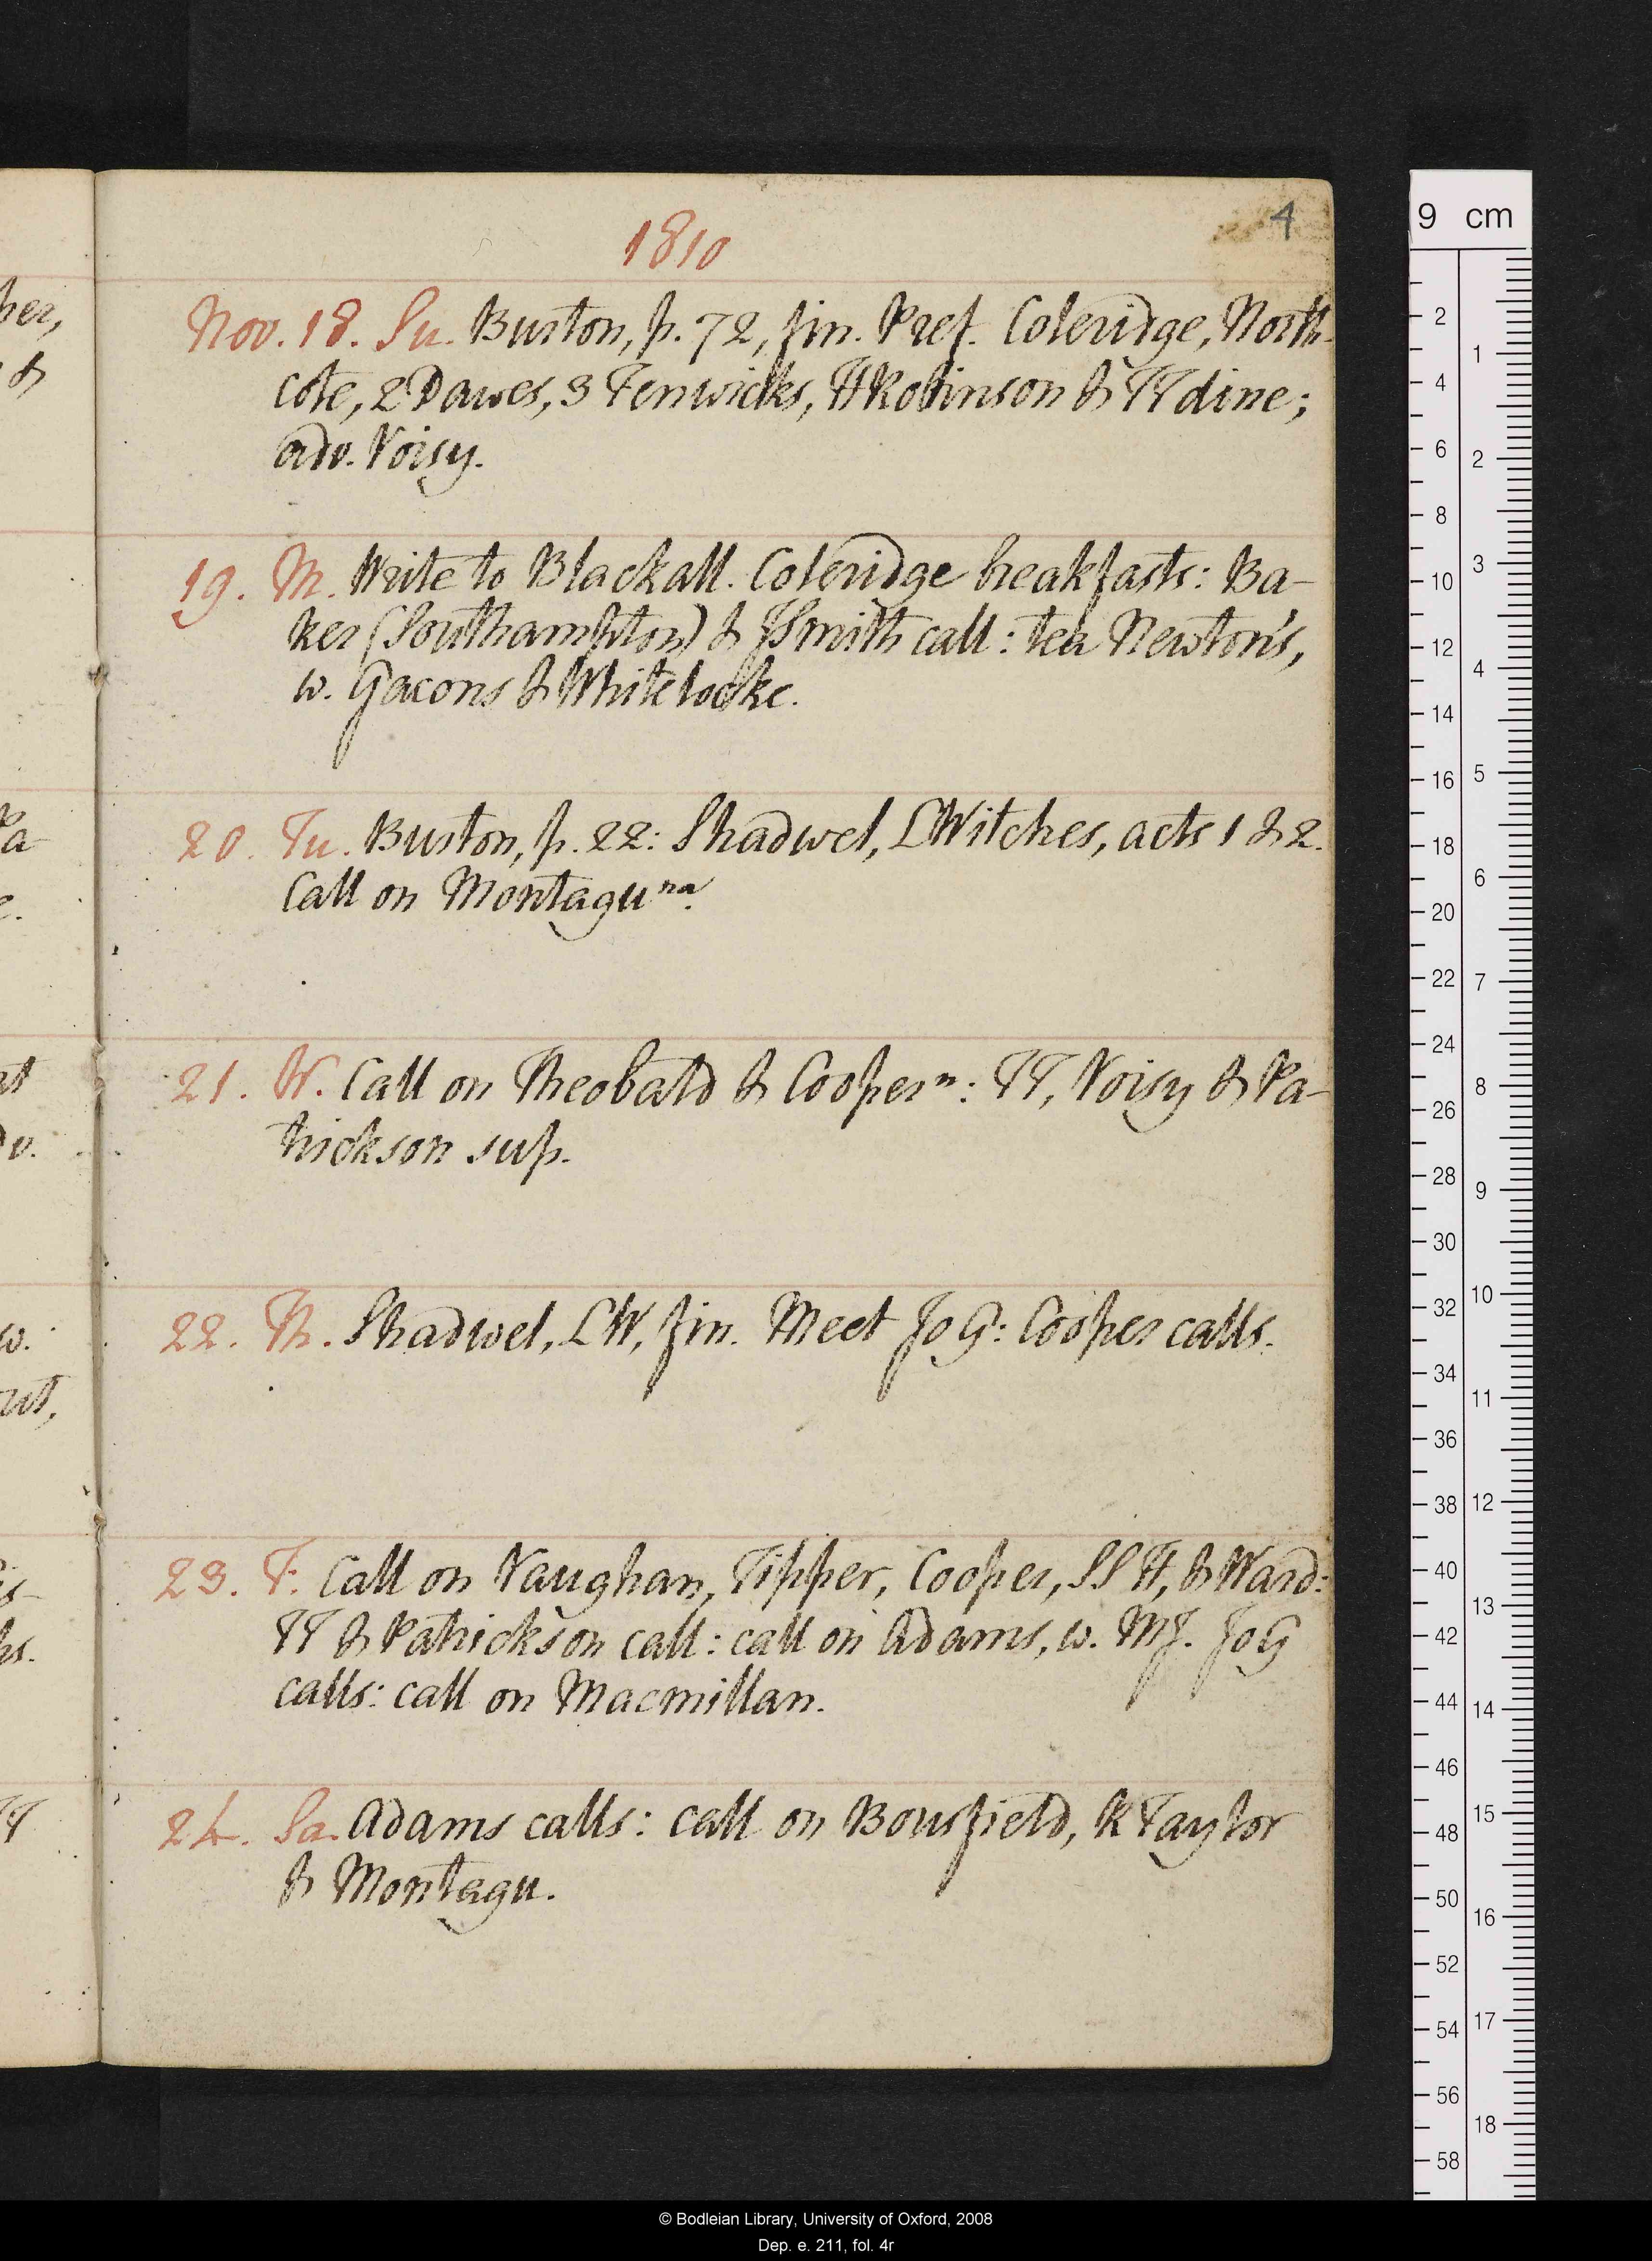 4
1810
Nov. 18. Su. Burton, p. 72, fin. Pref. Coleridge, North-
cote, 2 Dawes, 3 Fenwicks, HRobinson & TT dine;
adv. Voisy.
19. M. Write to Blackall. Coleridge breakfasts: Ba-
ker (Southampton) & JSmith call: tea Newton's,
w. Gacons & Whitelocke.
20. Tu. Burton, p. 22: Shadwel, LWitches, acts 1 & 2.
Call on Montagu na.
21. W. Call on Theobald & Cooper n: TT, Voisy & Pa-
trickson sup.
22. Th. Shadwel, LW, fin. Meet JoG: Cooper calls.
23. F. Call on Vaughan, Tipper, Cooper, SSH, & Ward:
TT & Patrickson call: call on Adams, w. MJ. JoG
calls: call on Macmillan.
24. Sa. Adams calls: call on Bousfield, RTaylor
& Montagu.
9 cm
© Bodleian Library, University of Oxford, 2008
Dep. e. 211, fol. 4r